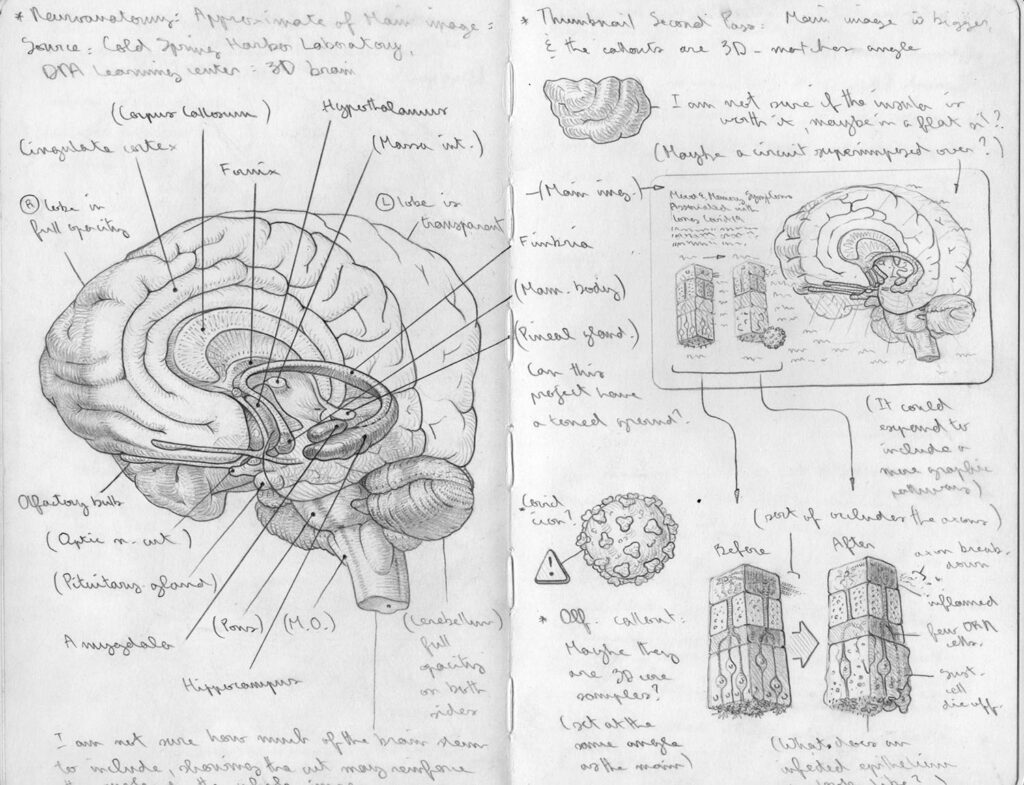 * Neuroanatomy: Approximate of Main image:
Source: Cold Spring Harbor Laboratory,
DNA Learning center: 3D brain
(Corpus Callosum)
Hypothalamus
Cingulate cortex
(Massa int.)
Fornix
R lobe in
full opacity
L lobe is
transparent
Fimbria
(Mam. body)
(Pineal gland.)
Olfactory bulb
(Optic n. cut)
(Pituitary gland)
Amygdala
(Pons)
(M.O.)
Hippocampus
(Cerebellum)
full
opacity
on both
sides
I am not sure how much of the brain stem
to include, showing the cut may reinforce
* Thumbnail Second Pass: Main image is bigger,
& the callouts are 3D - matches angle
I am not sure if the insula is
worth it, maybe in a flat
(Maybe a circuit superimposed over?)
(Main img.)
Mood & Memory Symptoms
Associated with
Long Covid19
Can this
project have
a toned ground?
(It could
expand to
include a
more graphic
pathways)
Covid
icon?
!
(sort of occludes the axons)
Before
After
axon break-
down
inflamed
few ORN
cells.
sust.
cell
die off.
* Olf. callout:
Maybe they
are 3D core
samples?
(set at the
same angle
as the main)
(What does an
infected epithelium
look like?)